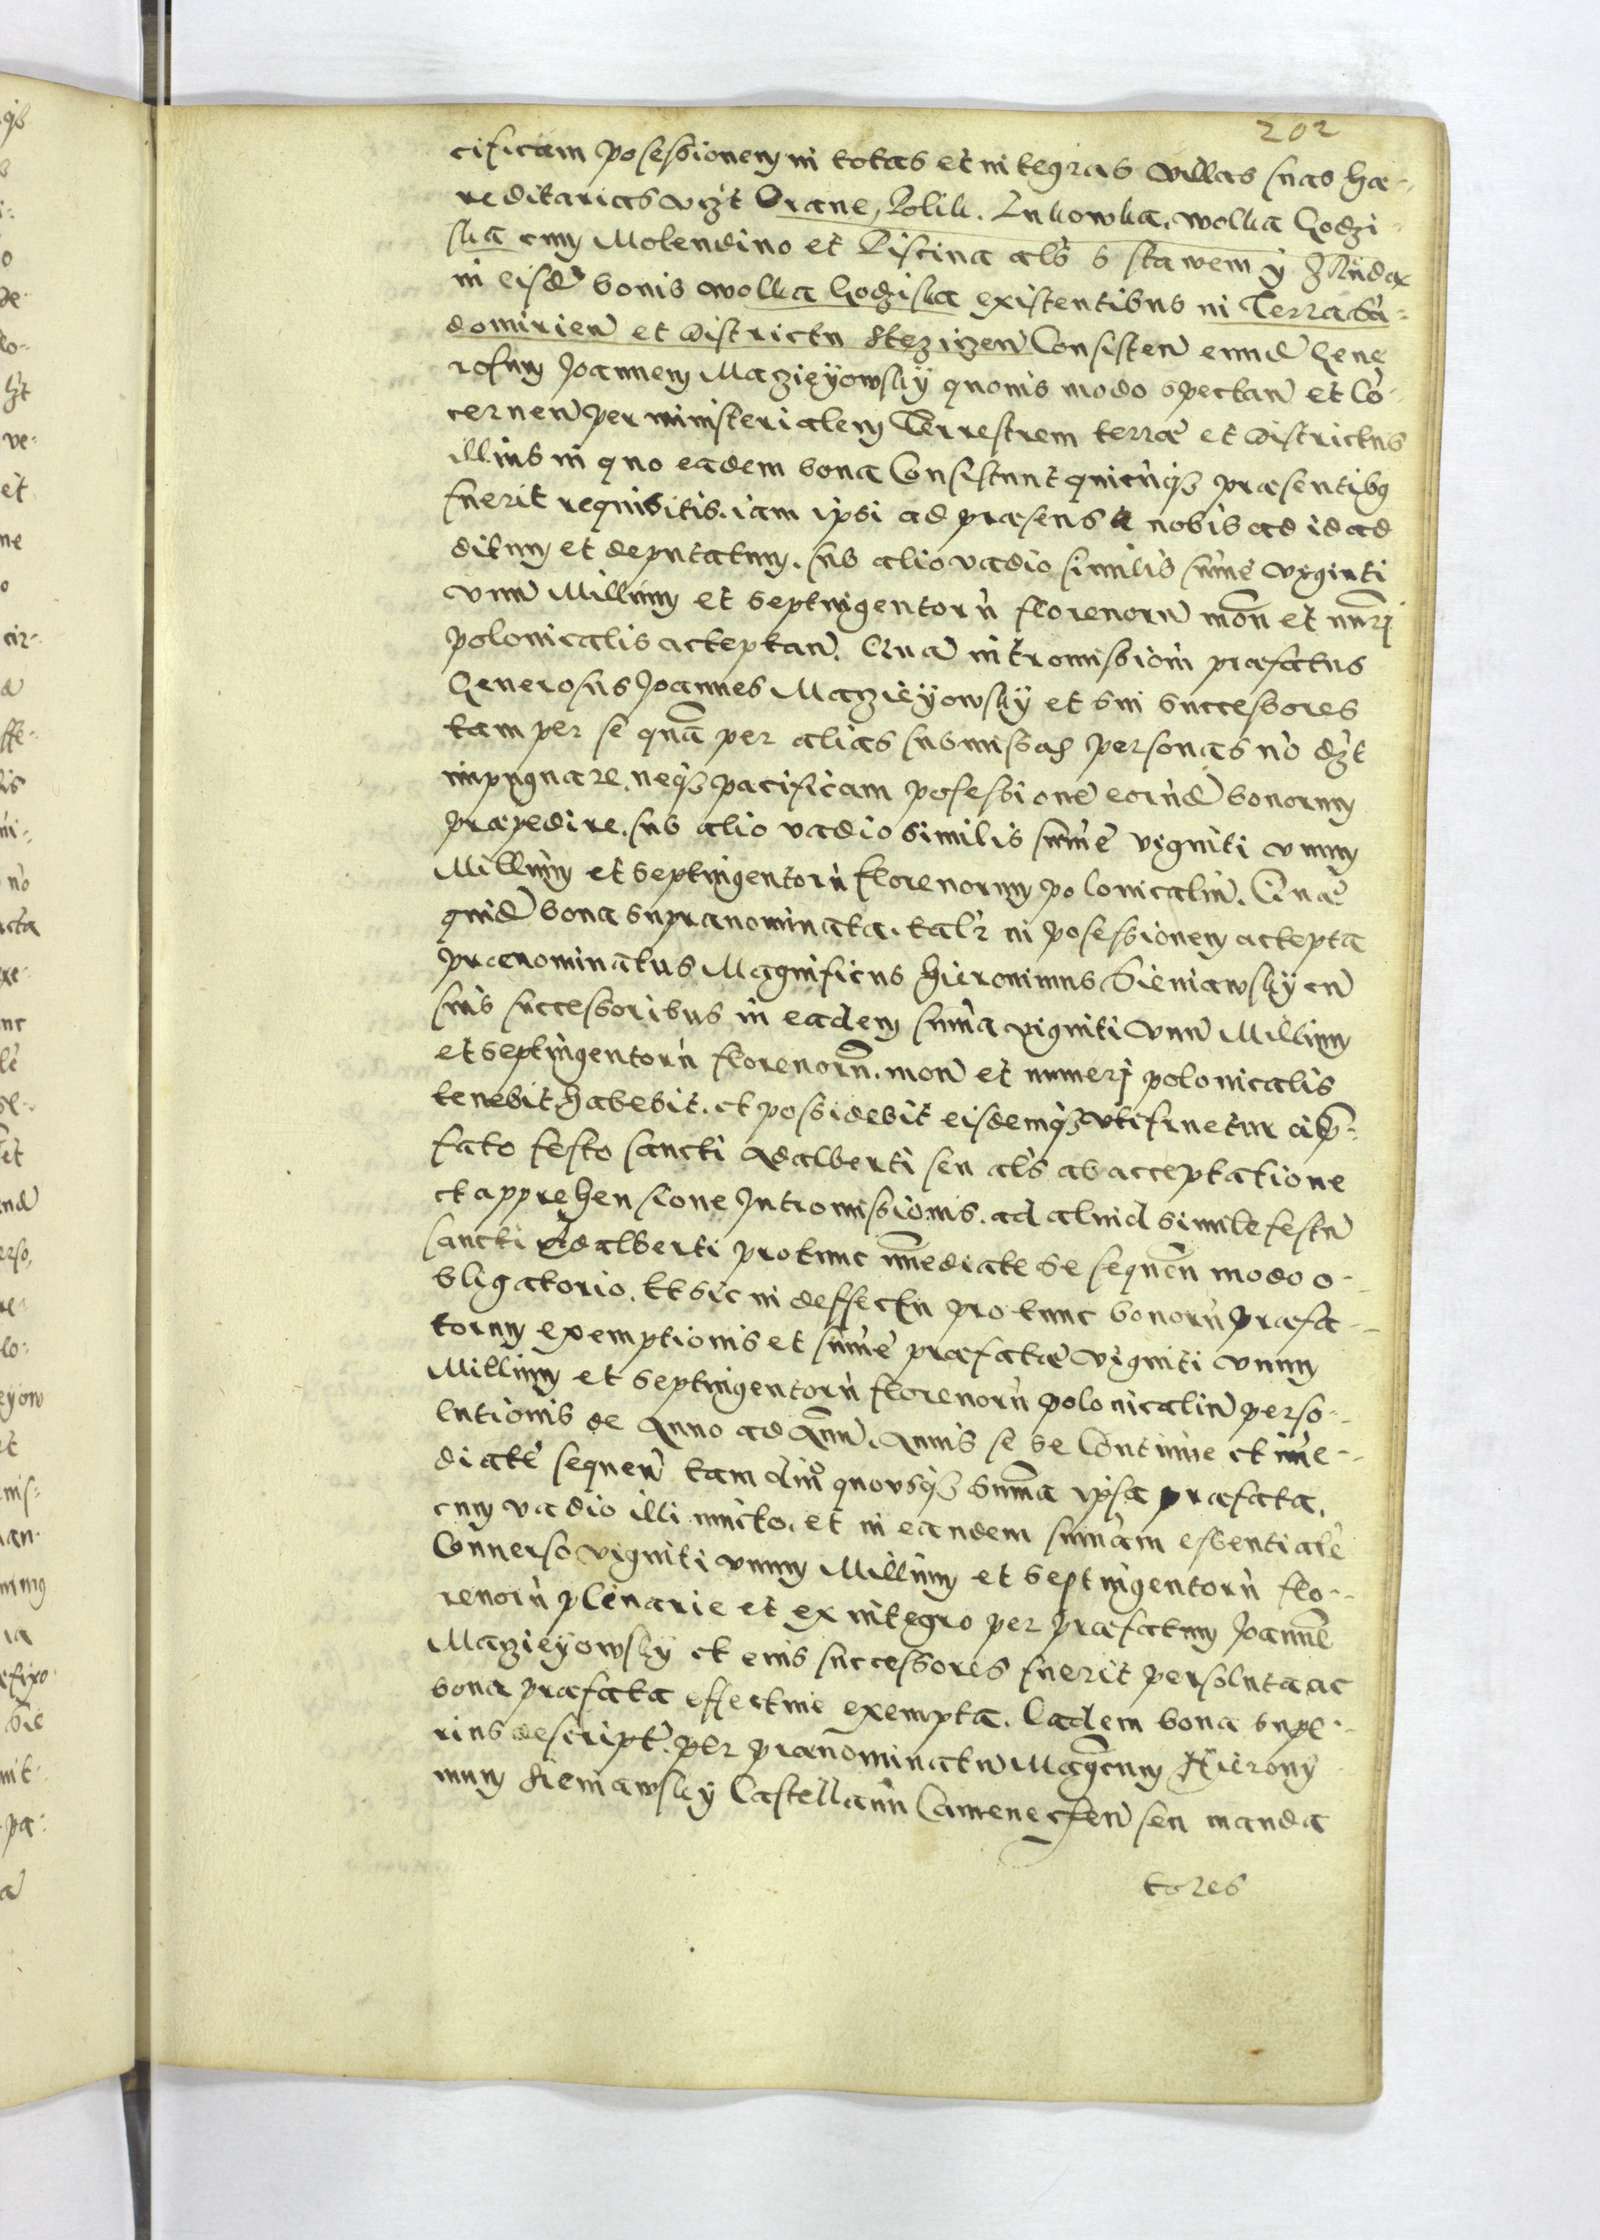 202
cificam possessionem in totas et integras villas suas hæ-
reditarias vīzt Drane, Rolik. Zukowka. wolka Godzi-
ska cum Molendino et Piscina als s stawem y
in eisdē bonis wolka Godziska existentibus in Terra Sā-
domirien et Districtu Stezizen Consisten eund Gene
rosum Joannem Maczieyowsky quouis modo spectan et Cō-
cernen per ministerialem Terrestrem terræ et Districtus
illius in quo eadem bona Consistunt quicūqз præsentibus
fuerit requisitis. iam ipsi ad præsens a nobis ad id ad
ditum et deputatum. sub alio vadio similis sūmē viginti
vnū Millium et septingentorū florenorū mon et nūrj
polonicalis acceptan. Quā intromissionē præfatus
Generosus Joannes Maczieyowsky et sui successores
tam per se quā per alias submissas personas nō dƷt
impugnare. neqз pacificam possessionē eorūdē bonorum
præpedire. sub alio vadio similis sūmē viginti vnum
Millium et septingentorū florenorum polonicaliū. Quæ
quidē bona supranominata. talr in possessionem accepta
prænominatus Magnificus Hieronimus Sieniawsky cū
suis successoribus in eadem sūma viginti vnū Millium
et septingentorū florenorū. mon et numerj polonicalis
tenebit habebit. et possidebit eisdemqз vtifruetur a p̄-
fato festo sancti Adalberti seu als ab acceptatione
et apprehensione Intromissionis. ad aliud simile festū
sancti Adalberti protunc īmediate se sequēn modo o-
bligatorio. Et sic in deffectu protunc bonorū præfa-
torum exemptionis et sūmē præfatæ viginti vnum
Millium et septingentorū florenorū polonicaliū perso-
lutionis de Anno ad Annū. Annis se se Continue et īme-
diatē sequen tam diu quousqз summa ipsa præfata.
cum vadio illi iuncto. et in eandem sūmam essentialē
Conuerso viginti vnum Millium et septingentorū flo-
renorū plenarie et ex integro per præfatum Joannē
Maczieyowsky et eius successores fuerit persoluta ac
bona præfata effectiue exempta. Eadem bona supe-
rius descript. per prænominatū Magcum Hierony
mum Sieniawsky Castellanū Camenecsen seu manda
tores